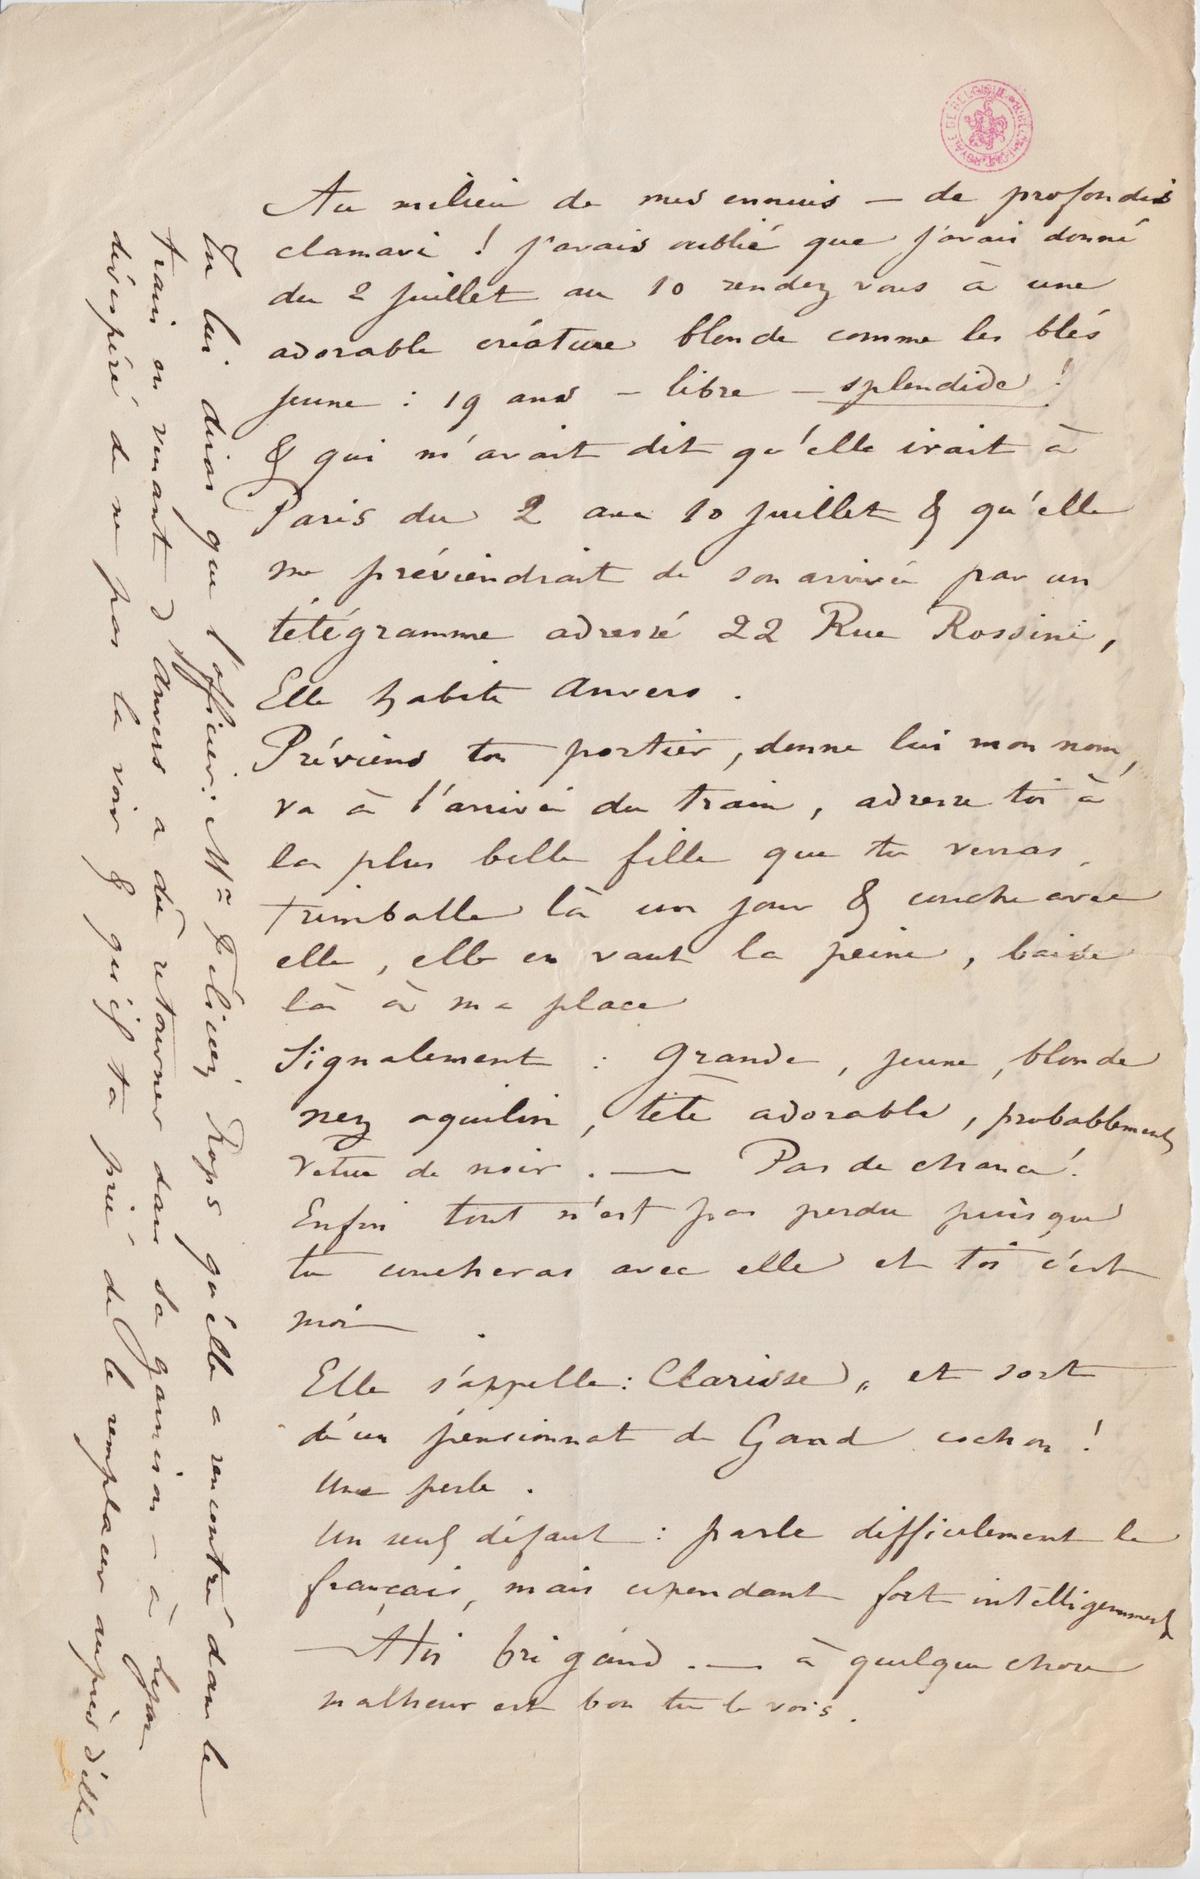 Au milieu de mes ennuis – de profondis
clamavi ! j'avais oublié que j'avais donné
du 2 juillet au 10 rendez vous à une
adorable créature blonde comme les blés
jeune : 19 ans – libre – splendide !
& qui m'avait dit qu'elle irait à
Paris du 2 au 10 juillet & qu'elle
me préviendrait de son arrivée par un
télégramme adressé 22 Rue Rossini,
Elle habite Anvers.
Préviens ton portier, donne lui mon nom,
va à l'arrivée du train, adresse toi à
la plus belle fille que tu verras,
trimballe là un jour & couche avec
elle, elle en vaut la peine, baise
là à ma place
Signalement : Grande, jeune, blonde
nez aquilin, tête adorable, probablement
vetue de noir. — Pas de chance !
Enfin tout n'est pas perdu puisque
tu coucheras avec elle et toi c'est
moi —
Elle s'appelle : Clarisse, et sort
d'un pensionnat de Gand cochon !
Une perle.
Un seul défaut : parle difficilement le
français, mais cependant fort intelligemment
— Ah brigand. — à quelque chose
malheur est bon tu le vois.
Tu lui diras que l'officier : Mr Félicien Rops qu'elle a rencontré dans le
train en venant d'Anvers a dû retourner dans sa garnison – à Lyon
désespéré de ne pas la voir & qu'il t'a prié de le remplacer auprès d'elle